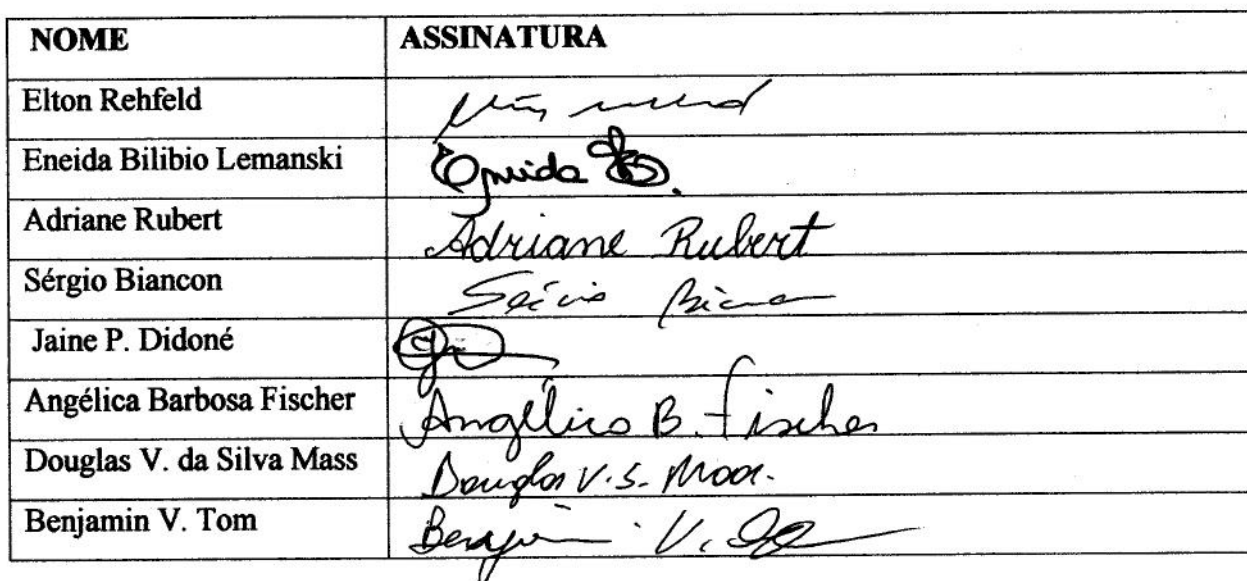 NOME ASSINATURA
Elton Rehfeld
Eneida Bilibio Lemanski Eneida
Adriane Rubert Adriane Rubert
Sérgio Biancon
Jaine P. Didoné
Angélica Barbosa Fischer Angélica B. Fischer
Douglas V. da Silva Mass Douglas V.S. Mass.
Benjamin V. Tom Benjamin V.